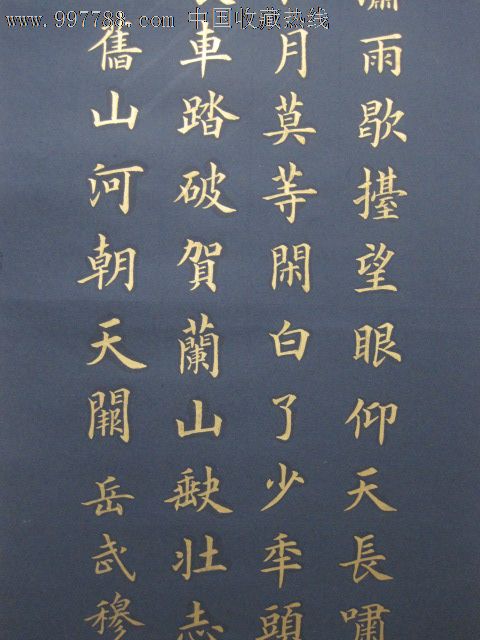 www.997788.com 中国收藏热线
雨歇擡望眼仰天長嘯
月莫等閑白了少年頭
車踏破賀蘭山缺壯志
舊山河朝天闕岳武穆